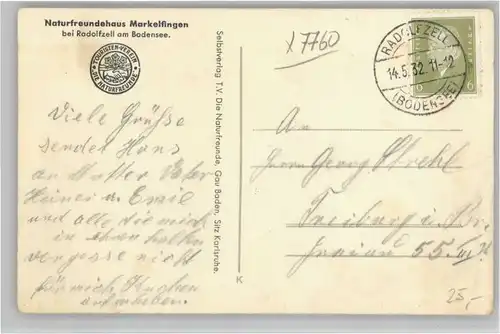 Naturfreundehaus Markelfingen
bei Radolfzell am Bodensee.
TOURISTEN-VEREIN
"DIE NATURFREUNDE"
Viele Grüsse
sendet Hans
an Mutter Vater
Heiner u. Emil
und alle die mich
in ehren halten
vergesse nicht
für mich Kuchen
aufheben.
Selbstverlag T.V. Die Naturfreunde, Gau Baden, Sitz Karlsruhe.
K
X 7760
RADOLFZELL
14.5.32. 11-12
(BODENSEE)
6
An
Herrn Georg Strehl
Freiburg i. Br.
55 III
25,-